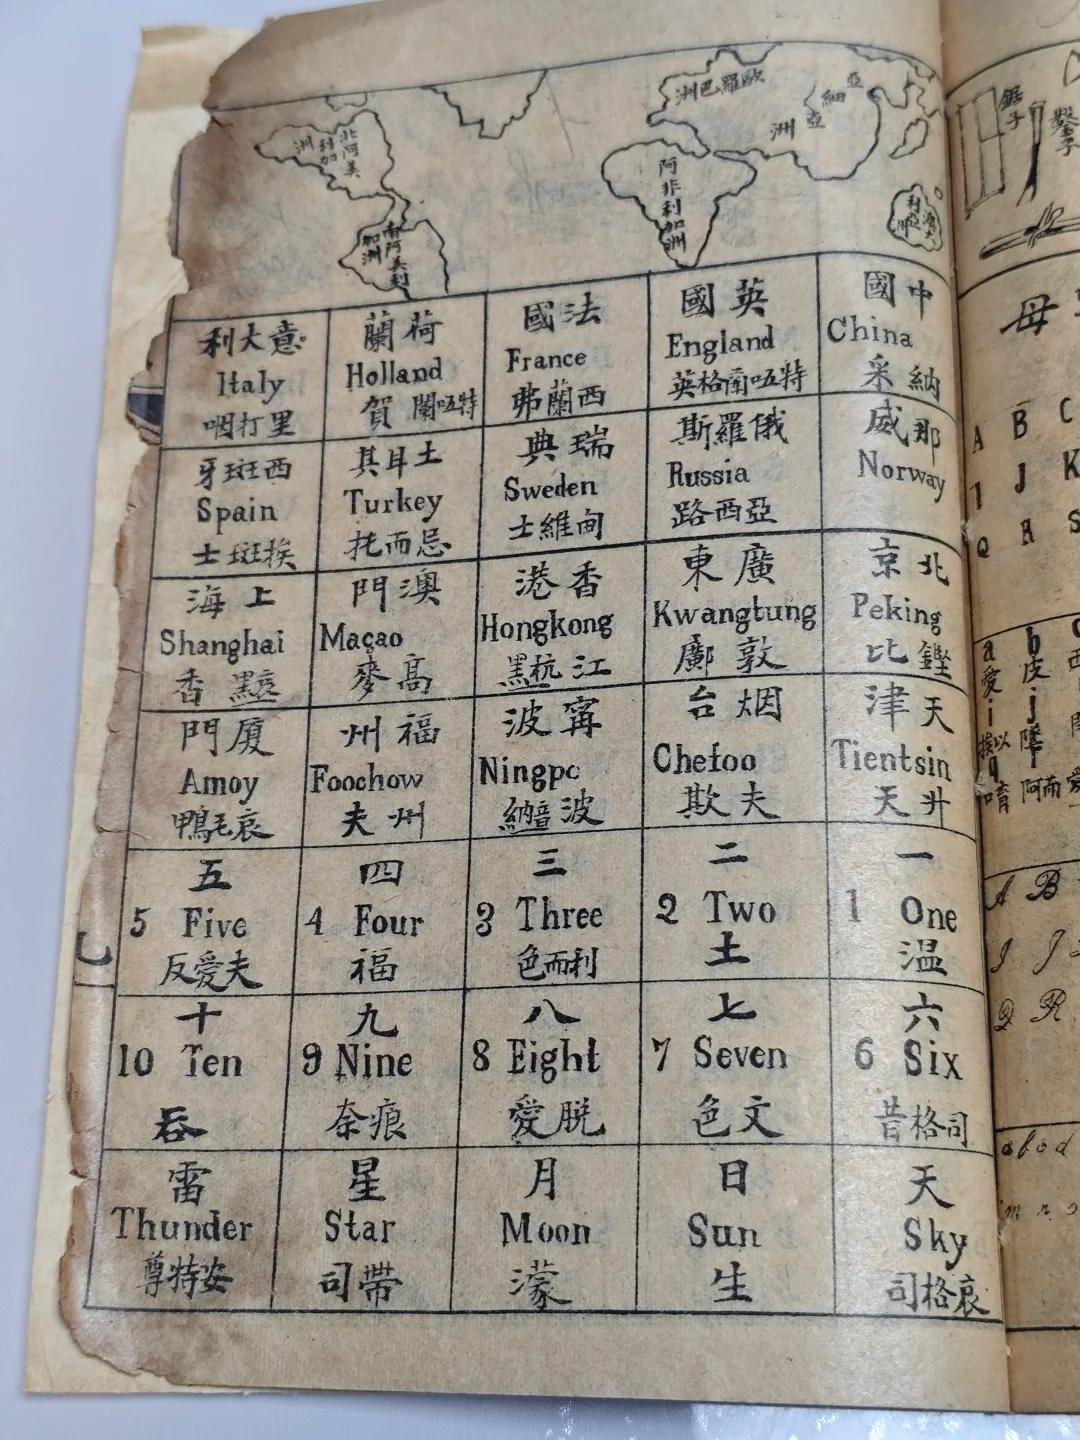 洲利加 北阿美
南阿美利加洲
歐羅巴洲
亞細亞洲
阿非利加洲
鋸子
鑿子
中國
China
采納
英國
England
英格蘭㕶特
法國
France
弗蘭西
荷蘭
Holland
賀蘭㕶特
意大利
Italy
咽打里
那威
Norway
俄羅斯
Russia
路西亞
瑞典
Sweden
士維甸
土耳其
Turkey
托而忌
西班牙
Spain
士班挨
北京
Peking
比鏗
廣東
Kwangtung
鄺敦
香港
Hongkong
江
澳門
Maçao
麥高
上海
Shanghai
香
天津
Tientsin
天升
烟台
Chefoo
欺夫
寗波
Ningpo
波
福州
Foochow
夫州
厦門
Amoy
鴨毛哀
一
1 One
温
二
2 Two
土
三
3 Three
色而利
四
4 Four
福
五
5 Five
反愛夫
六
6 Six
昔格司
七
7 Seven
色文
八
8 Eight
愛脱
九
9 Nine
奈痕
十
10 Ten
吞
天
Sky
司格哀
日
Sun
生
月
Moon
濛
星
Star
司帶
雷
Thunder
尊特安
母
A B C
J K
Q R S
a b
愛 皮 西
i j
挨以
q
阿而
A B
I J
Q R
a b c d
m n o